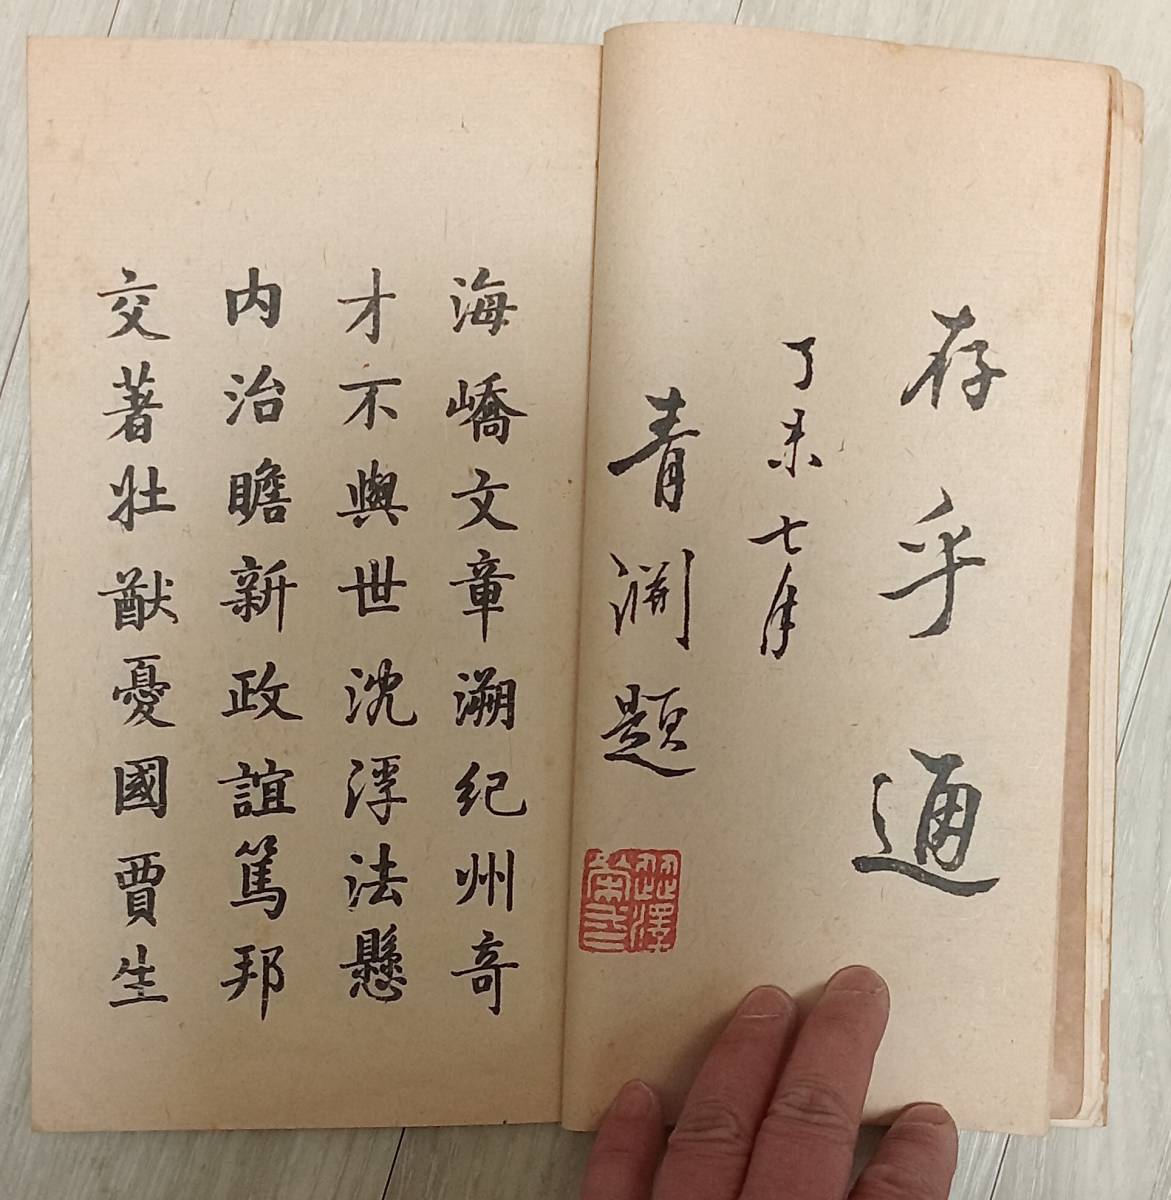 存乎通
丁未七月
青淵題
澁澤
榮一
海嶠文章溯紀州奇
才不與世沈浮法懸
内治瞻新政誼篤邦
交著壯猷憂國賈生